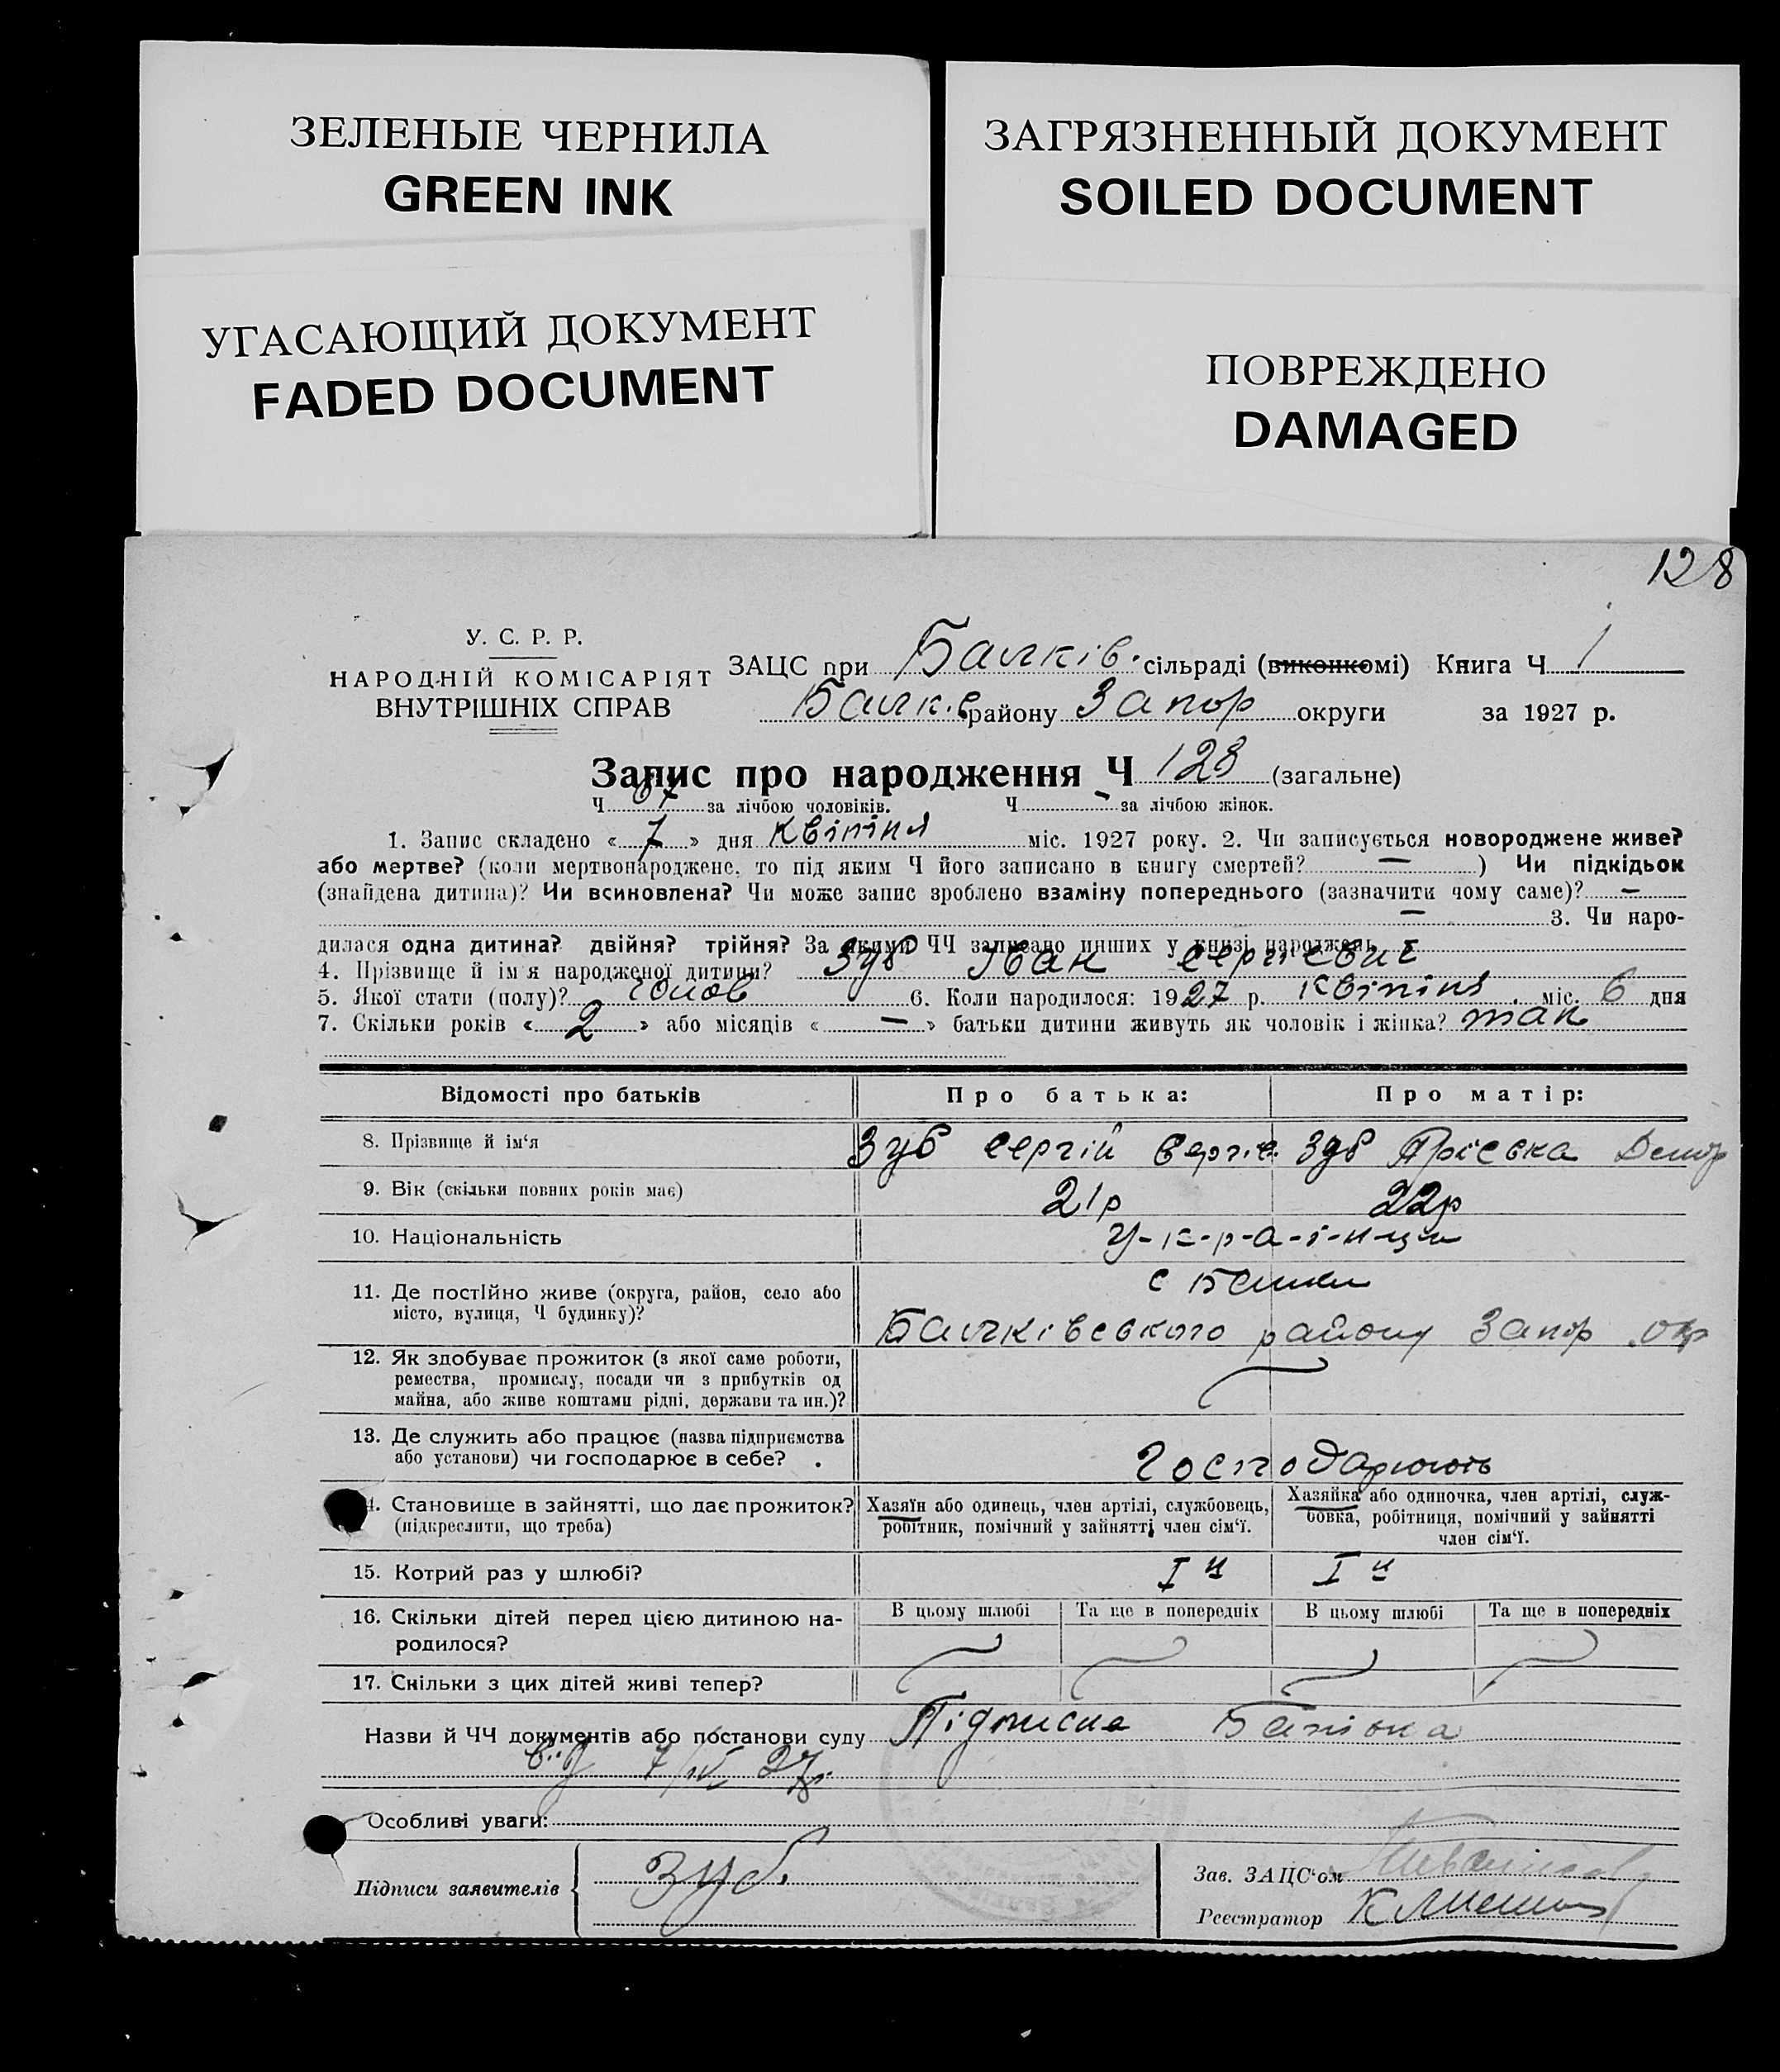 ЗЕЛЕНЫЕ ЧЕРНИЛА
GREEN INK
ЗАГРЯЗНЕННЫЙ ДОКУМЕНТ
SOILED DOCUMENT
УГАСАЮЩИЙ ДОКУМЕНТ
FADED DOCUMENT
ПОВРЕЖДЕНО
DAMAGED
128
У. С. Р. Р.
НАРОДНІЙ КОМІСАРІЯТ
ВНУТРІШНІХ СПРАВ
ЗАЦС при Балків. сільраді (виконкомі) Книга Ч 1
Балк.в району Запор округи за 1927 р.
Запис про народження Ч 128 (загальне)
Ч 67 за лічбою чоловіків. Ч - за лічбою жінок.
1. Запис складено « 7 » дня квітня міс. 1927 року. 2. Чи записується новороджене живе?
або мертве? (коли мертвонароджене, то під яким Ч його записано в книгу смертей? — ) Чи підкідьок
(знайдена дитина)? Чи всиновлена? Чи може запис зроблено взаміну попереднього (зазначити чому саме)? —
— 3. Чи наро-
дилася одна дитина? двійня? трійня? За якими ЧЧ записано инших у книзі народжень
4. Прізвище й ім'я народженої дитини? Зуб Іван Сергієвич
5. Якої стати (полу)? чолов 6. Коли народилося: 1927 р. квітня міс. 6 дня
7. Скільки років « 2 » або місяців « — » батьки дитини живуть як чоловік і жінка? так
Відомості про батьків
Про батька:
Про матір:
8. Прізвище й ім'я Зуб Сергій Сергіє. Зуб Пріська Дмитр
9. Вік (скільки повних років має) 21р 22р
10. Національність У-к-р-а-ї-н-ци
11. Де постійно живе (округа, район, село або місто, вулиця, Ч будинку)?
с Балки
Балківського району Запор окр
12. Як здобуває прожиток (з якої саме роботи,
ремества, промислу, посади чи з прибутків од
майна, або живе коштами рідні, держави та ин.)?
13. Де служить або працює (назва підприємства
або установи) чи господарює в себе? Господарюють
14. Становище в зайнятті, що дає прожиток?
(підкреслити, що треба)
Хазяїн або одинець, член артілі, службовець,
робітник, помічний у зайнятті член сім'ї.
Хазяйка або одиночка, член артілі, служ-
бовка, робітниця, помічний у зайнятті
член сім'ї.
15. Котрий раз у шлюбі? I й I й
16. Скільки дітей перед цією дитиною на-
родилося?
В цьому шлюбі Та ще в попередніх В цьому шлюбі Та ще в попередніх
17. Скільки з цих дітей живі тепер?
Назви й ЧЧ документів або постанови суду Підписка Батька
від 7/IV 27р.
Особливі уваги:
Підписи заявителів Зуб.
Зав. ЗАЦС'ом
Реєстратор